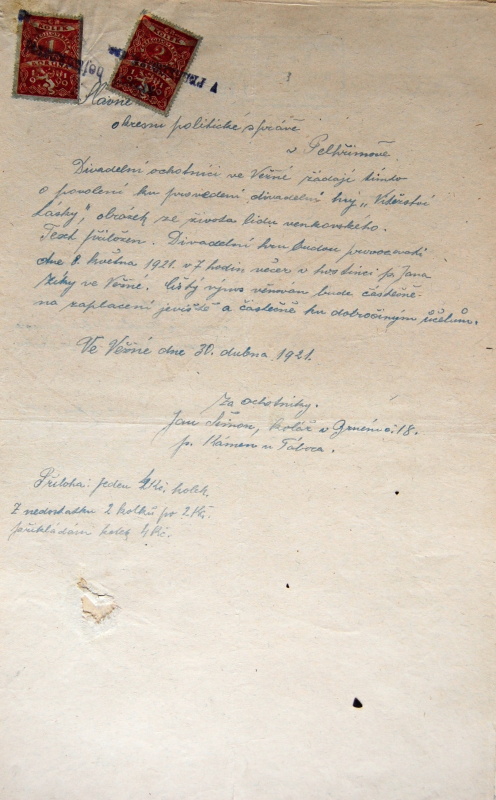 ČR
KOLEK
1
KORUNA
KOLEK
2
KORUNY
Slavné
okresní politické správě
v Pelhřimově.
Divadelní ochotníci ve Věžné žádají tímto
o povolení ku provedení divadelní hry „Vítězství
lásky", obrázek ze života lidu venkovského.
Text přiložen. Divadelní hru budou provozovati
dne 8. května 1921 v 7 hodin večer v hostinci p. Jana
Ziky ve Věžné. Čistý výnos věnován bude částečně
na zaplacení jeviště a částečně ku dobročiným účelům.
Ve Věžné dne 30. dubna 1921.
Za ochotníky.
Jan Šimon, kolář v č. 18.
p. Kámen u Tábora.
Příloha: jeden 4Kč. kolek.
Z nedostatku 2 kolků po 2 Kč.
přikládám kolek 4 Kč.